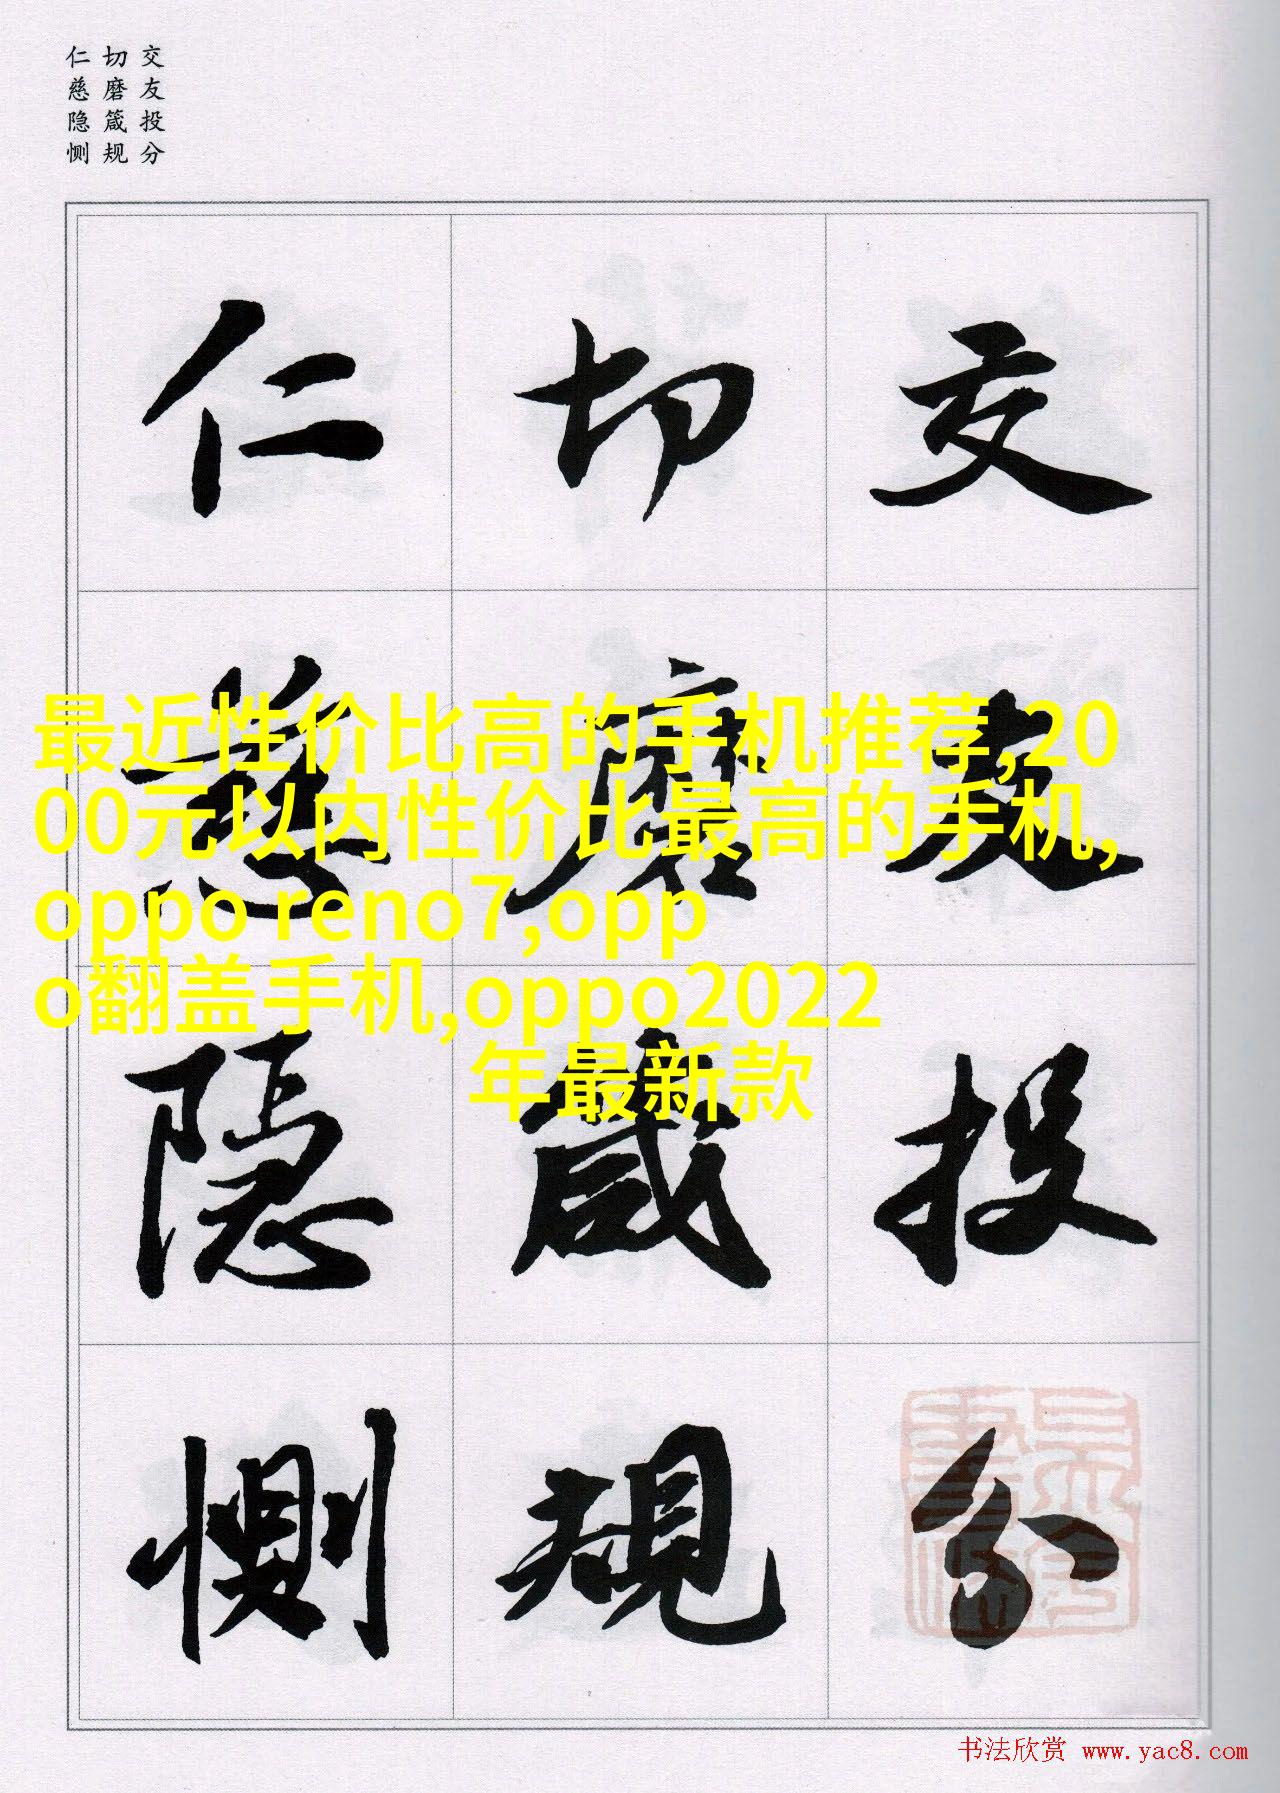 交友投分
切磨箴规
仁慈隐恻
交友投分
切磨箴規
仁慈隐恻
最近性价比高的手机推荐,20
00元以内性价比最高的手机,
oppo reno7,opp
o翻盖手机,oppo2022
年最新款
书法欣赏 www.yac8.com